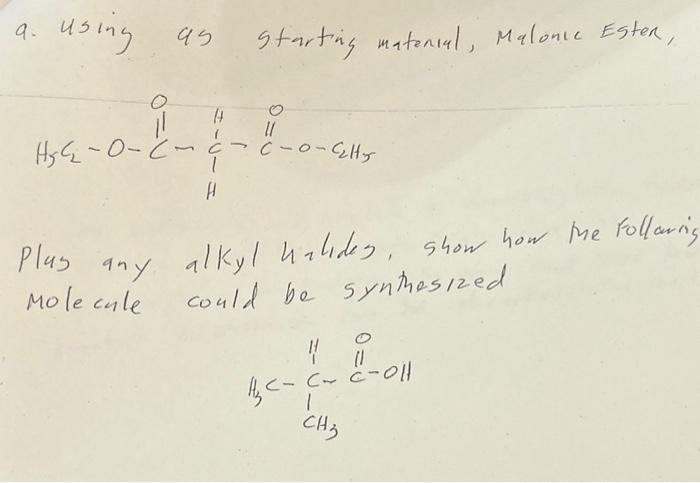 a. using as starting material, Malonic Ester,
O H O
|| | ||
H5C2-O-C-C-C-O-C2H5
|
H
Plus any alkyl halides, show how the Following
Molecule could be synthesized
H O
| ||
H3C-C-C-OH
|
CH3